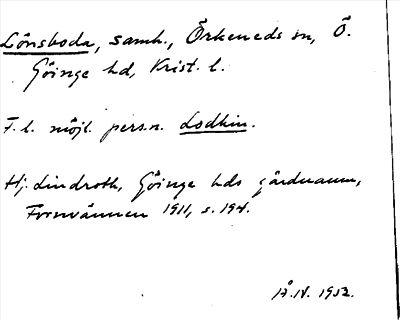 Lönsboda, samh., Örkeneds sn, Ö.
Göinge hd, Krist. l.
F. l. möjl. pers.n. Lodhin.
Hj. Lindroth, Göinge hds gårdnamn,
Fornvännen 1911, s. 194.
IV. 1952.